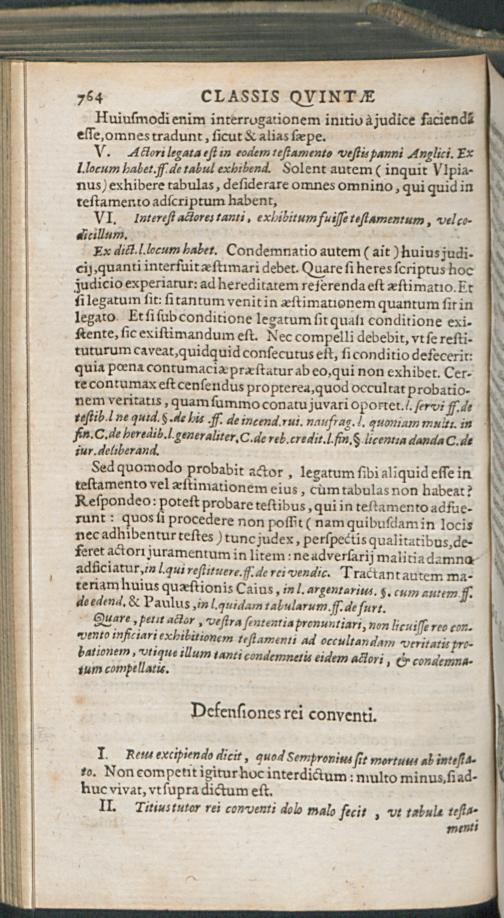 764 CLASSIS QVINTÆ
Huiusmodi enim interrogationem initio à judice faciendā
esse, omnes tradunt, sicut & alias sæpe.
V. Actori legata est in eodem testamento vestis panni Anglici. Ex
l. locum habet. ff. de tabul exhibend. Solent autem ( inquit Vlpia-
nus) exhibere tabulas, desiderare omnes omnino, qui quid in
testamento adscriptum habent,
VI. Interest actores tanti, exhibitum fuisse testamentum, vel co-
dicillum.
Ex dict. l. locum habet. Condemnatio autem ( ait ) huius judi-
cij, quanti interfuit æstimari debet. Quare si heres scriptus hoc
judicio experiatur: ad hereditatem referenda est æstimatio. Et
si legatum sit: si tantum venit in æstimationem quantum sit in
legato. Et si sub conditione legatum sit quasi conditione exi-
stente, sic existimandum est. Nec compelli debebit, vt se resti-
tuturum caveat, quidquid consecutus est, si conditio defecerit:
quia pœna contumaciæ præstatur ab eo, qui non exhibet. Cer-
te contumax est censendus propterea, quod occultat probatio-
nem veritatis, quam summo conatu juvari oportet. l. servi ff. de
testib. l ne quid. §. de his. ff. de incend. rui. naufrag. l. quoniam multi. in
fin. C. de heredib. l. generaliter. C. de reb. credit. l. fin. §. licentia danda C. de
iur. deliberand.
Sed quomodo probabit actor, legatum sibi aliquid esse in
testamento vel æstimationem eius, cùm tabulas non habeat?
Respondeo: potest probare testibus, qui in testamento adfue-
runt: quos si procedere non possit ( nam quibusdam in locis
nec adhibentur testes ) tunc judex, perspectis qualitatibus, de-
feret actori juramentum in litem: ne adversarij malitia damno
adficiatur, in l. qui restituere. ff. de rei vendic. Tractant autem ma-
teriam huius quæstionis Caius, in l. argentarius. §. cum autem. ff.
de edend. & Paulus, in l. quidam tabularum. ff. de furt.
Quare, petit actor, vestra sententia pronuntiari, non licuisse reo con-
vento inficiari exhibitionem testamenti ad occultandam veritatis pro-
bationem, vtique illum tanti condemnetis eidem actori, & condemna-
tum compellatis.
Defensiones rei conventi.
I. Reus excipiendo dicit, quod Sempronius sit mortuus ab intesta-
to. Non competit igitur hoc interdictum: multo minus, si ad-
huc vivat, vt supra dictum est.
II. Titius tutor rei conventi dolo malo fecit, vt tabulæ testa-
menti